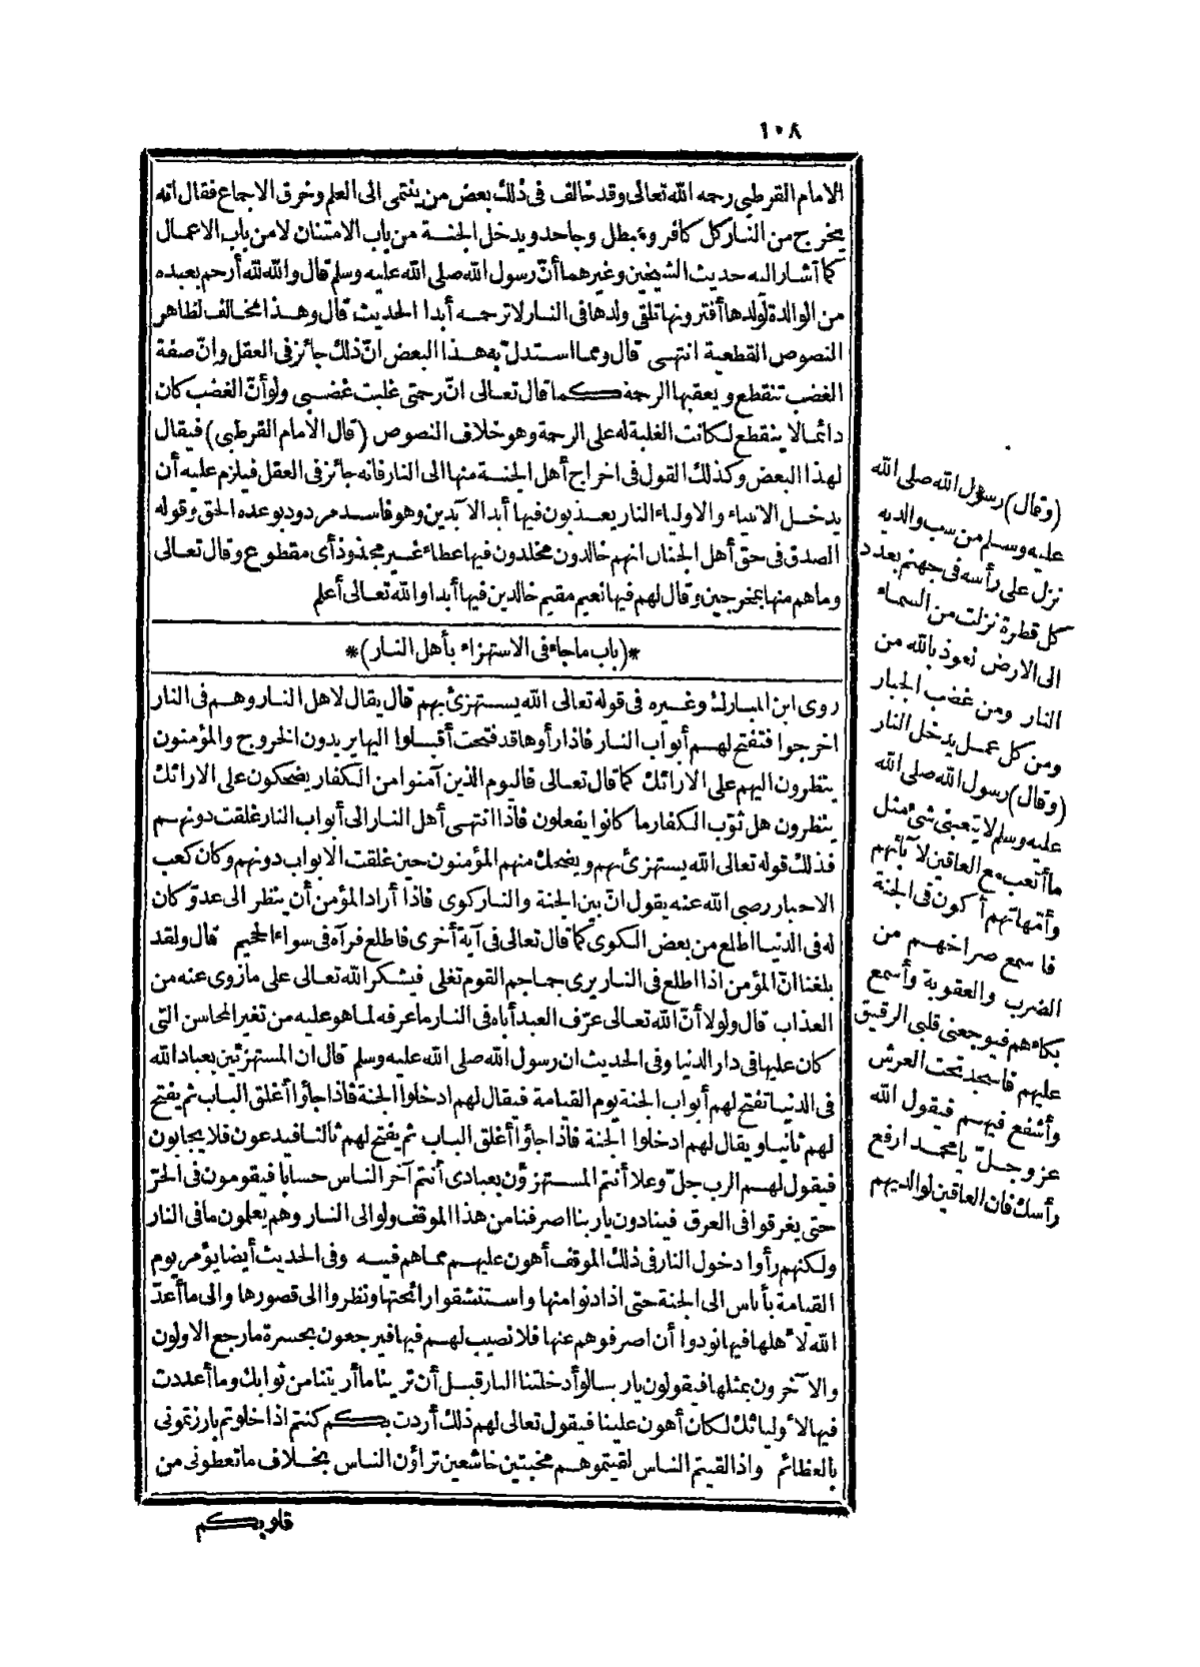 ١٠٨
الامام القرطبي رحمه الله تعالى وقد خالف فى ذلك بعض من ينتمى الى العلم وخرق الاجماع فقال انه
يخرج من النار كل كافر ومبطل وجاحد ويدخل الجنة من باب الامتنان لا من باب الاعمال
كما أشار اليه حديث الشيخين وغيرهما أنّ رسول الله صلى الله عليه وسلم قال والله لله أرحم بعبده
من الوالدة لولدها أفترونها تلقى ولدها فى النار لا ترحمه أبدا الحديث قال وهذا مخالف لظاهر
النصوص القطعية انتهى قال ومما استدلّ به هذا البعض انّ ذلك جائز فى العقل وانّ صفة
الغضب تنقطع ويعقبها الرحمة كما قال تعالى انّ رحمتى غلبت غضبى ولو أنّ الغضب كان
دائما لا ينقطع لكانت الغلبة له على الرحمة وهو خلاف النصوص (قال الامام القرطبى) فيقال
لهذا البعض وكذلك القول فى اخراج أهل الجنة منها الى النار فانه جائز فى العقل فيلزم عليه أن
يدخل الانبياء والاولياء النار يعذبون فيها أبد الآبدين وهو فاسد مردود بوعده الحق وقوله
الصدق فى حق أهل الجنان انهم خالدون مخلدون فيها عطاء غير مجذوذ أى مقطوع وقال تعالى
وما هم منها بمخرجين وقال لهم فيها نعيم مقيم خالدين فيها أبدا والله تعالى أعلم
*(باب ما جاء فى الاستهزاء بأهل النار)*
روى ابن المبارك وغيره فى قوله تعالى الله يستهزئ بهم قال يقال لاهل النار وهم فى النار
اخرجوا فتفتح لهم أبواب النار فاذا رأوها قد فتحت أقبلوا اليها يريدون الخروج والمؤمنون
ينظرون اليهم على الارائك كما قال تعالى فاليوم الذين آمنوا من الكفار يضحكون على الارائك
ينظرون هل ثوّب الكفار ما كانوا يفعلون فاذا انتهى أهل النار الى أبواب النار غلقت دونهم
فذلك قوله تعالى الله يستهزئ بهم ويضحك منهم المؤمنون حين غلقت الابواب دونهم وكان كعب
الاحبار رضى الله عنه يقول انّ بين الجنة والنار كوى فاذا أراد المؤمن أن ينظر الى عدوّ كان
له فى الدنيا اطلع من بعض الكوى كما قال تعالى فى آية أخرى فاطلع فرآه فى سواء الجحيم قال ولقد
بلغنا انّ المؤمن اذا اطلع فى النار يرى جماجم القوم تغلى فيشكر الله تعالى على ما زوى عنه من
العذاب قال ولولا أنّ الله تعالى عرّف العبد أباه فى النار ما عرفه لما هو عليه من تغير المحاسن التى
كان عليها فى دار الدنيا وفى الحديث ان رسول الله صلى الله عليه وسلم قال ان المستهزئين بعباد الله
فى الدنيا تفتح لهم أبواب الجنة يوم القيامة فيقال لهم ادخلوا الجنة فاذا جاؤا أغلق الباب ثم يفتح
لهم ثانيا ويقال لهم ادخلوا الجنة فاذا جاؤا أغلق الباب ثم يفتح لهم ثالثا فيدعون فلا يجابون
فيقول لهم الرب جلّ وعلا أنتم المستهزؤن بعبادى أنتم آخر الناس حسابا فيقومون فى الحرّ
حتى يغرقوا فى العرق فينادون يا ربنا اصرفنا من هذا الموقف ولو الى النار وهم يعلمون ما فى النار
ولكنهم رأوا دخول النار فى ذلك الموقف أهون عليهم مما هم فيه وفى الحديث أيضا يؤمر يوم
القيامة بأناس الى الجنة حتى اذا دنوا منها واستنشقوا رائحتها ونظروا الى قصورها والى ما أعدّ
الله لأهلها فيها نودوا أن اصرفوهم عنها فلا نصيب لهم فيها فيرجعون بحسرة ما رجع الاولون
والآخرون بمثلها فيقولون يا ربنا لو أدخلتنا النار قبل أن ترينا ما أريتنا من ثوابك وما أعددت
فيها لأوليائك لكان أهون علينا فيقول تعالى لهم ذلك أردت بكم كنتم اذا خلوتم بارزتمونى
بالعظائم واذا لقيتم الناس لقيتموهم مخبتين خاشعين تراؤن الناس بخلاف ما تعطونى من
قلوبكم
(وقال) رسول الله صلى الله
عليه وسلم من سب والديه
نزل على رأسه فى جهنم بعدد
كل قطرة نزلت من السماء
الى الارض نعوذ بالله من
النار ومن غضب الجبار
ومن كل عمل يدخل النار
(وقال) رسول الله صلى الله
عليه وسلم لا يتعبنى شئ مثل
ما أتعب مع العاقين لآبائهم
وأمّهاتهم أكون فى الجنة
فاسمع صراخهم من
الضرب والعقوبة وأسمع
بكاءهم فيوجعنى قلبى الرقيق
عليهم فاسجد تحت العرش
وأشفع فيهم فيقول الله
عز وجلّ يا محمد ارفع
رأسك فان العاقين لوالديهم